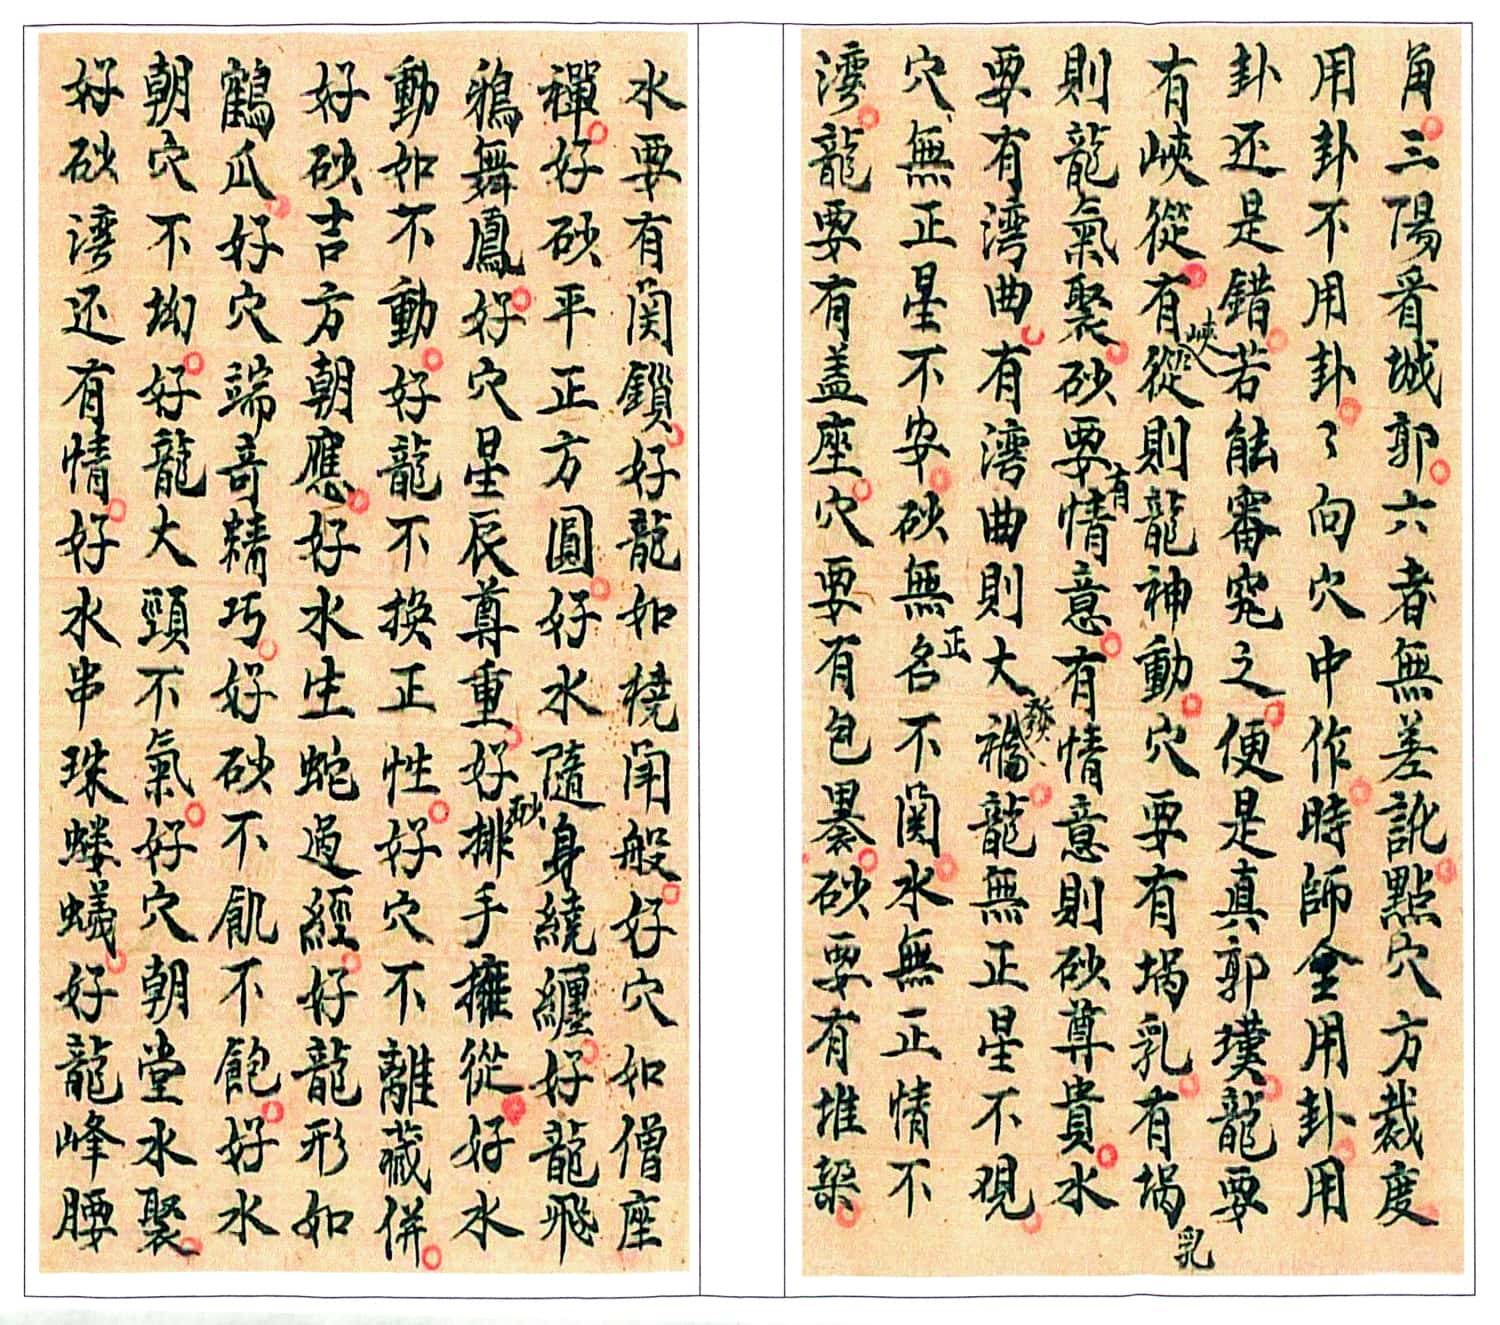 角三陽看城郭六者無差訛點穴方裁度
用卦不用卦々向穴中作時師全用卦用
卦还是錯若能審究之便是真郭璞龍要
有峽從有峽從則龍神動穴要有堝乳有堝乳
則龍氣聚砂要有情意有情意則砂尊貴水
要有湾曲有湾曲則大發福龍無正星不覌
穴無正星不安砂無正名不関水無正情不
湾龍要有盖座穴要有包褁砂要有堆
水要有関鎖好龍如橈閙般好穴如僧座
禪好砂平正方圓好水隨身繞纒好龍飛
鴉舞鳳好穴星辰尊重好砂排手擁從好水
動如不動好龍不換正性好穴不離藏併
好砂吉方朝應好水生蛇過經好龍形如
鶴瓜好穴端竒精巧好砂不飢不飽好水
朝穴不坳好龍大頸不氣好穴朝堂水聚
好砂湾还有情好水串珠螻蟻好龍峰腰